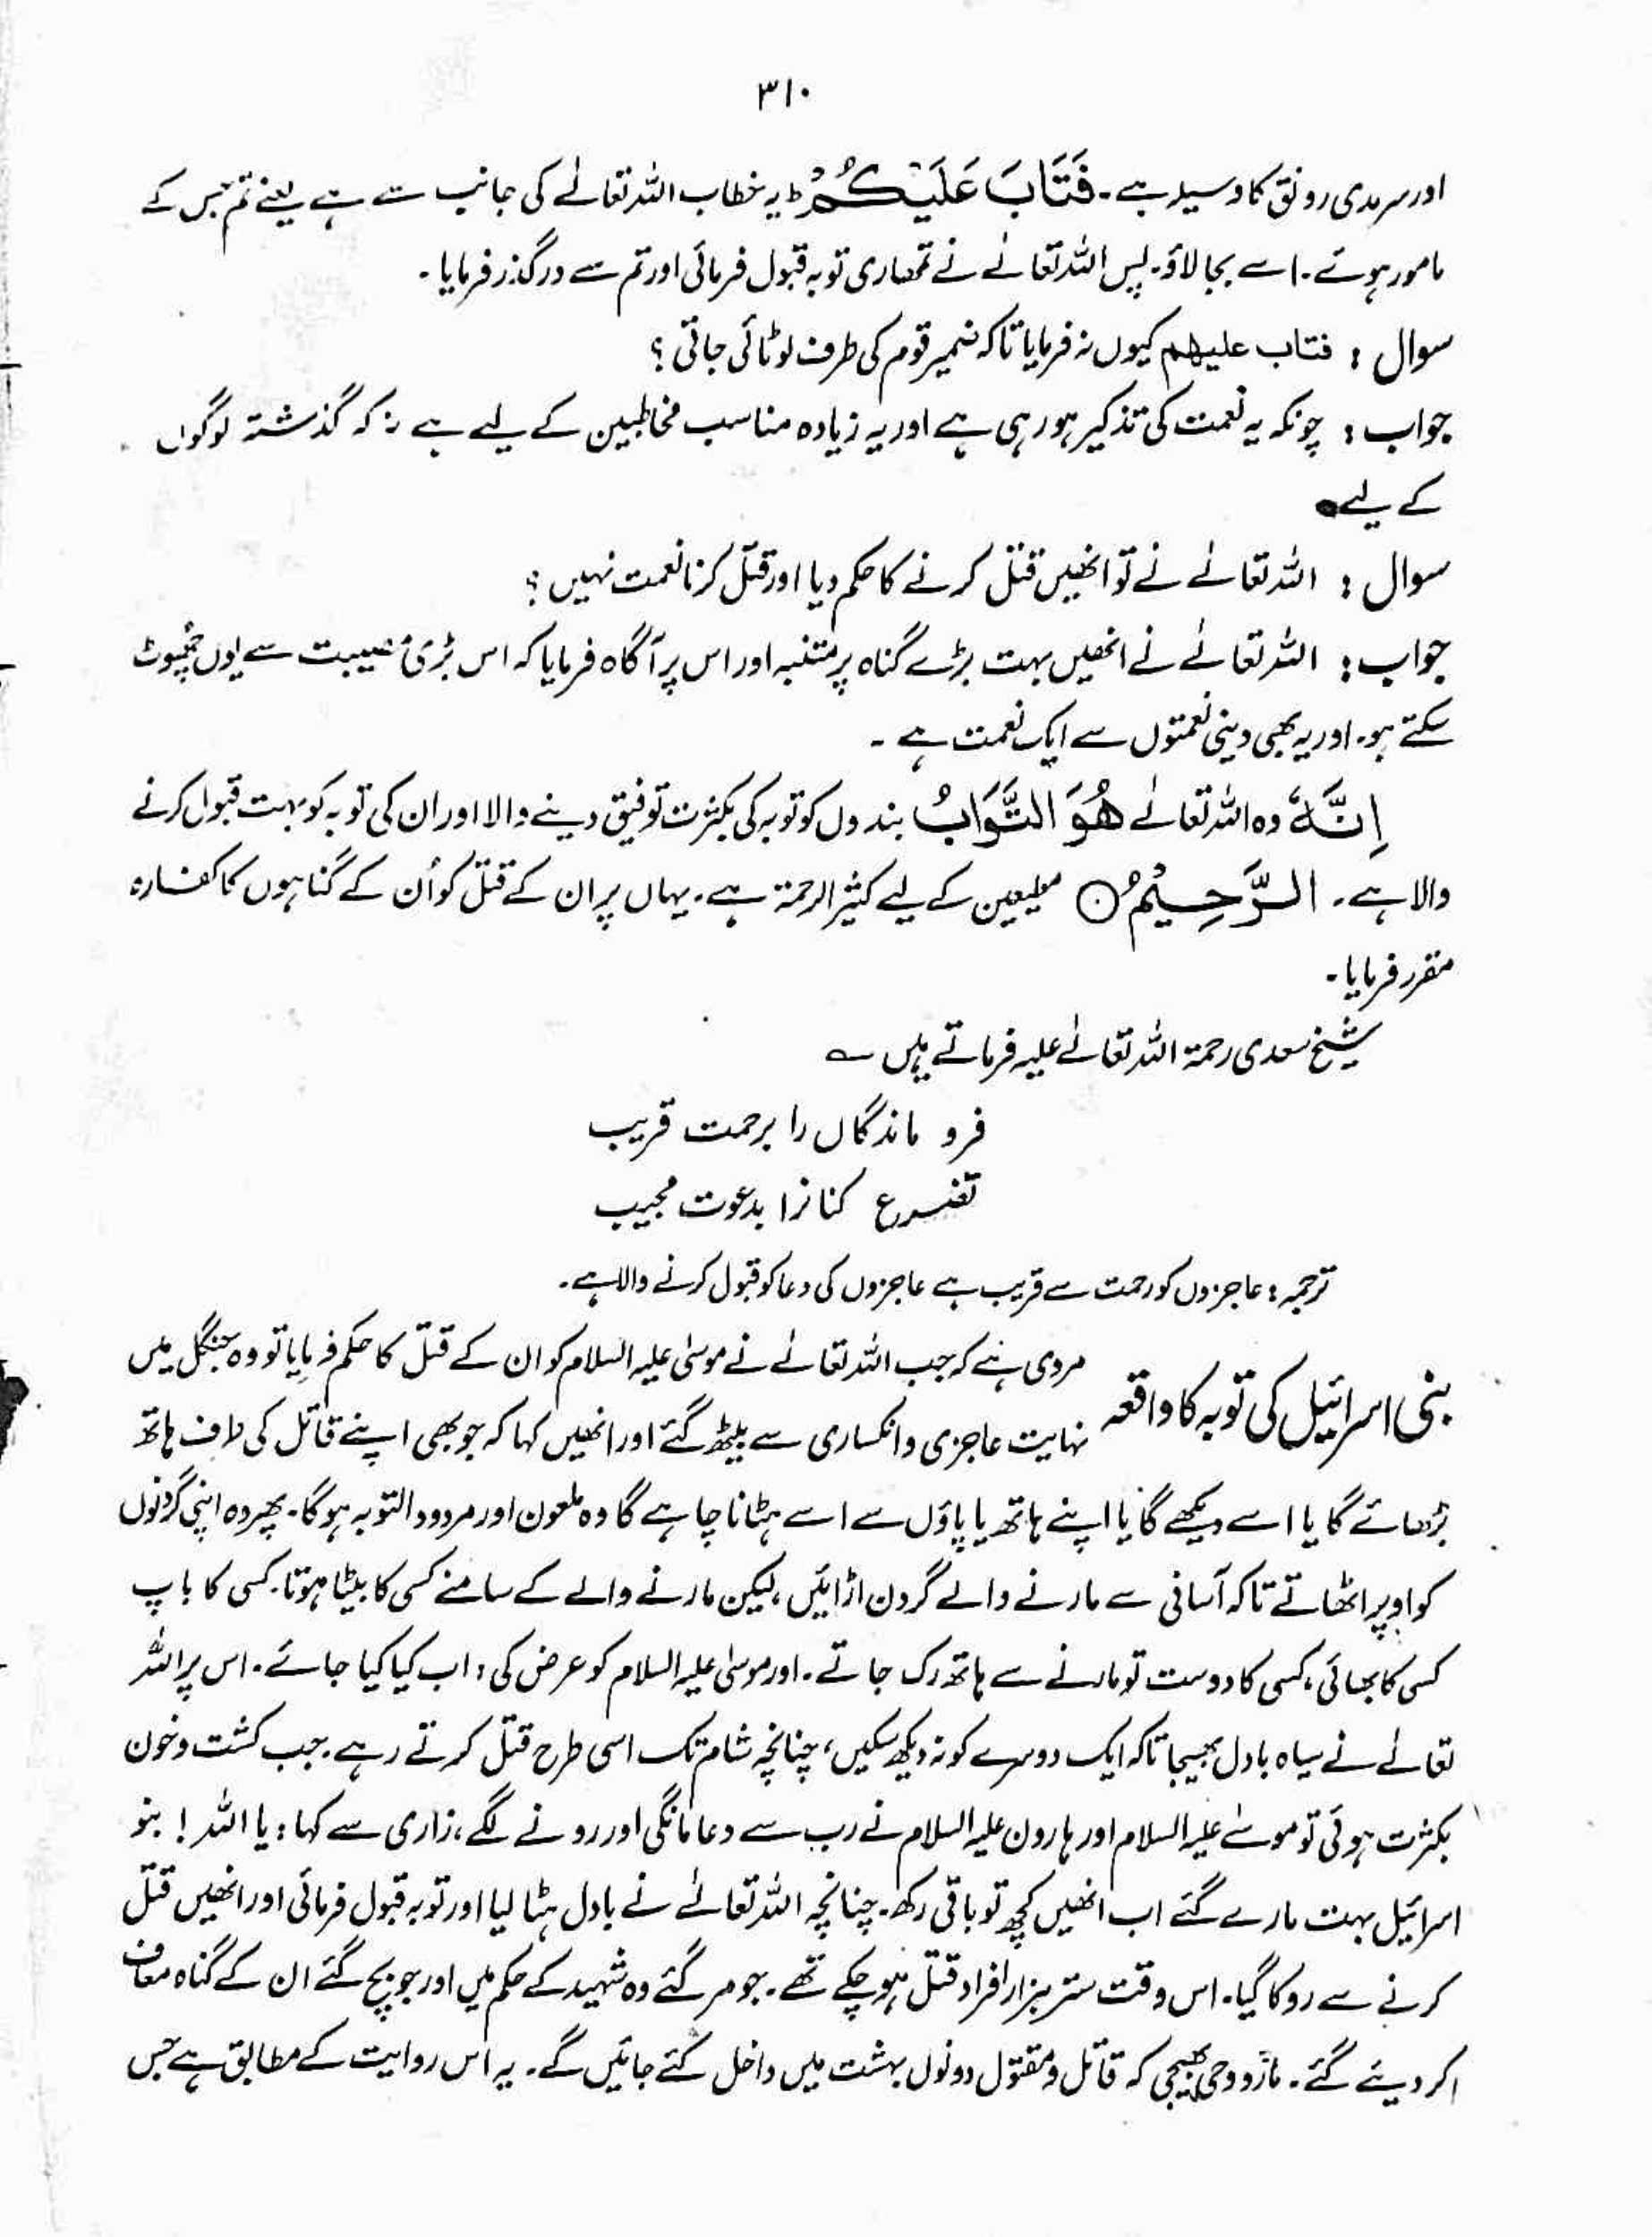 ۳۱۰
اور سرمدی رونق کا وسیلہ ہے۔ فَتَابَ عَلَيْكُمْ ط یہ خطاب اللہ تعالےٰ کی جانب سے ہے یعنے تم جس کے
مامور ہوئے۔ اسے بجا لاؤ۔ پس اللہ تعالےٰ نے تمھاری توبہ قبول فرمائی اور تم سے درگذر فرمایا۔
سوال : فتاب علیھم کیوں نہ فرمایا تاکہ ضمیر قوم کی طرف لوٹائی جاتی ؟
جواب : چونکہ یہ نعمت کی تذکیر ہو رہی ہے اور یہ زیادہ مناسب مخاطبین کے لیے ہے نہ کہ گذشتہ لوگوں
کے لیے۔
سوال : اللہ تعالےٰ نے تو انھیں قتل کرنے کا حکم دیا اور قتل کرنا نعمت نہیں ؟
جواب : اللہ تعالےٰ نے انھیں بہت بڑے گناہ پر متنبہ اور اس پر آگاہ فرمایا کہ اس بڑی مصیبت سے یوں چھوٹ
سکتے ہو۔ اور یہ بھی دینی نعمتوں سے ایک نعمت ہے ۔
اِنَّهٗ وہ اللہ تعالےٰ هُوَ التَّوَّابُ بندوں کو توبہ کی بکثرت توفیق دینے والا اور ان کی توبہ کو بہت قبول کرنے
والا ہے۔ الرَّحِيْمُ ○ مطیعین کے لیے کثیر الرحمۃ ہے۔ یہاں پر ان کے قتل کو اُن کے گناہوں کا کفارہ
مقرر فرمایا۔
شیخ سعدی رحمۃ اللہ تعالےٰ علیہ فرماتے ہیں ؎
فرو ماندگاں را برحمت قریب
تضرع کنانرا بدعوت مجیب
ترجمہ : عاجزوں کو رحمت سے قریب ہے عاجزوں کی دعا کو قبول کرنے والا ہے۔
بنی اسرائیل کی توبہ کا واقعہ مروی ہے کہ جب اللہ تعالےٰ نے موسیٰ علیہ السلام کو ان کے قتل کا حکم فرمایا تو وہ جنگل میں
نہایت عاجزی و انکساری سے بیٹھ گئے اور انھیں کہا کہ جو بھی اپنے قاتل کی طرف ہاتھ
بڑھائے گا یا اسے دیکھے گا یا اپنے ہاتھ یا پاؤں سے اسے ہٹانا چاہے گا وہ ملعون اور مردود التوبہ ہوگا۔ پھر وہ اپنی گردنوں
کو اوپر اٹھاتے تاکہ آسانی سے مارنے والے گردن اڑائیں، لیکن مارنے والے کے سامنے کسی کا بیٹا ہوتا۔ کسی کا باپ
کسی کا بھائی، کسی کا دوست تو مارنے سے ہاتھ رک جاتے۔ اور موسیٰ علیہ السلام کو عرض کی : اب کیا کیا جائے۔ اس پر اللہ
تعالےٰ نے سیاہ بادل بھیجا تاکہ ایک دوسرے کو نہ دیکھ سکیں، چنانچہ شام تک اسی طرح قتل کرتے رہے۔ جب کشت و خون
بکثرت ہوئی تو موسےٰ علیہ السلام اور ہارون علیہ السلام نے رب سے دعا مانگی اور رونے لگے، زاری سے کہا : یا اللہ ! بنو
اسرائیل بہت مارے گئے اب انھیں کچھ تو باقی رکھ۔ چنانچہ اللہ تعالےٰ نے بادل ہٹا لیا اور توبہ قبول فرمائی اور انھیں قتل
کرنے سے روکا گیا۔ اس وقت ستر ہزار افراد قتل ہو چکے تھے۔ جو مر گئے وہ شہید کے حکم میں اور جو بچ گئے ان کے گناہ معاف
کر دیئے گئے۔ وحی بھیجی کہ قاتل و مقتول دونوں بہشت میں داخل کئے جائیں گے۔ یہ اس روایت کے مطابق ہے جس